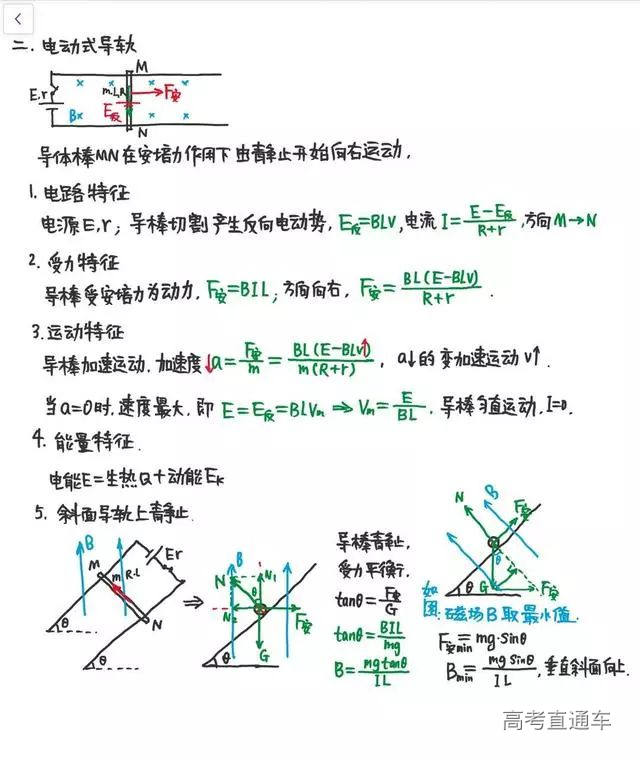 二. 电动式导轨
M
E.r
m.L.R
F安
E反
B
N
导体棒MN在安培力作用下由静止开始向右运动.
1. 电路特征
电源E,r; 导棒切割产生反向电动势, E反=BLV, 电流 I=(E-E反)/(R+r), 方向 M→N
2. 受力特征
导棒受安培力为动力, F安=BIL; 方向向右, F安=BL(E-BLV)/(R+r).
3. 运动特征
导棒加速运动. 加速度↓a=F安/m=BL(E-BLV↑)/m(R+r), a↓的变加速运动 V↑.
当a=0时, 速度最大, 即 E=E反=BLVm ⇒ Vm=E/BL. 导棒匀直运动, I=0.
4. 能量特征.
电能E=生热Q+动能Ek
5. 斜面导轨上静止.
B
Er
M
m
R.L
N
θ
θ
⇒
B
N
N1
θ
N2
F安
G
θ
导棒静止,
受力平衡.
tanθ=F安/G
tanθ=BIL/mg
B=mgtanθ/IL
N
B
F安
θ
θ
G
F安
如图: 磁场B取最小值.
F安min=mg·sinθ
Bmin=mgSinθ/IL, 垂直斜面向上.
高考直通车